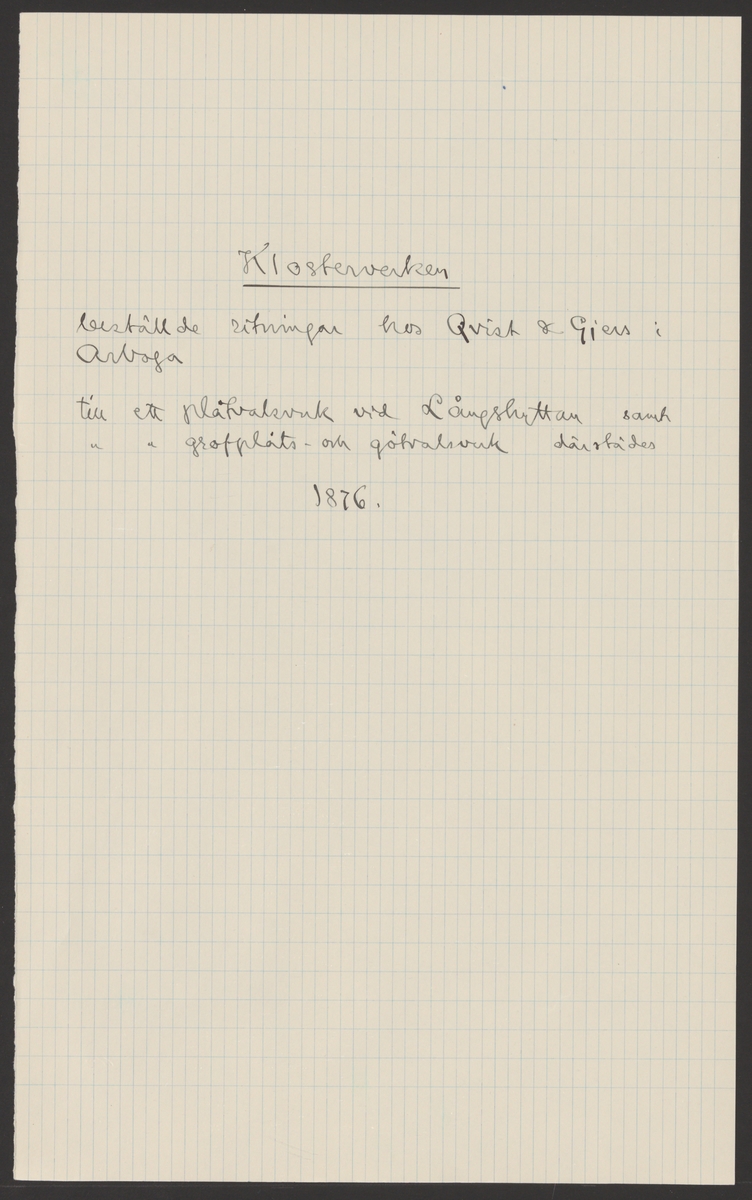 Klosterverken
beställde ritningar hos Qvist & Gjers i
Arboga
till ett plåtvalsverk vid Långshyttan samt
" " grofplåts- och götvalsverk därstädes
1876.